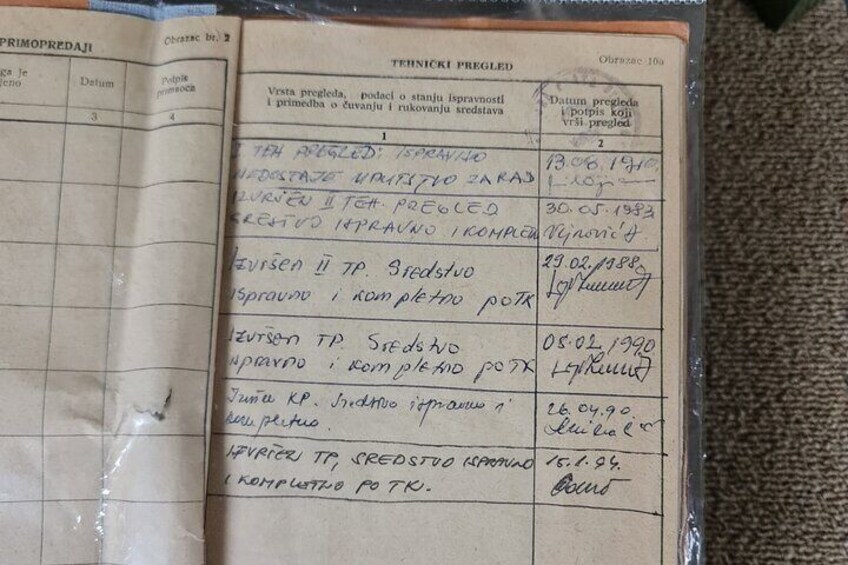 PRIMOPREDAJI
Obrazac br. 2
ga je
jeno
Datum
Potpis
primaoca
3
4
TEHNIČKI PREGLED
Obrazac 10a
Vrsta pregleda, podaci o stanju ispravnosti
i primedba o čuvanju i rukovanju sredstava
Datum pregleda
i potpis koji
vrši pregled
1
2
I TEH PREGLED: ISPRAVNO
NEDOSTAJE UPUTSTVO ZA RAD
13.08.1980.
IZVRŠEN II TEH. PREGLED
SRESTVO ISPRAVNO I KOMPLETN
30.05.1983
Vejnović
IZVRŠEN II TP. Sredstvo
ispravno i kompletno po TK
29.02.1988
IZVRŠEN TP. Sredstvo
ispravno i kompletno po TK
05.02.1990
KP. Sredstvo ispravno i
kompletno.
26.04.90.
IZVRŠEN TP, SREDSTVO ISPRAVNO
I KOMPLETNO PO TK.
15.1.94.